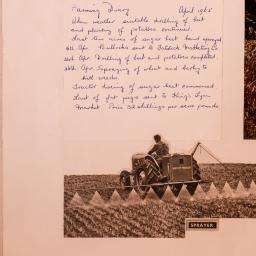 Farming Diary April 1965
When weather suitable drilling of beet
and planting of potatoes continued.
Last ten acres of sugar beet hand sprayed
Apr. Bullocks sent to Fatstock Marketing Co.
Apr. Drilling of beet and potatoes completed.
Apr. Spraying of wheat and barley to
kill weeds.
Tractor hoeing of sugar beet commenced
Last of fat pigs sent to King's Lynn
Market. Price 32 shillings per score pounds
SPRAYER